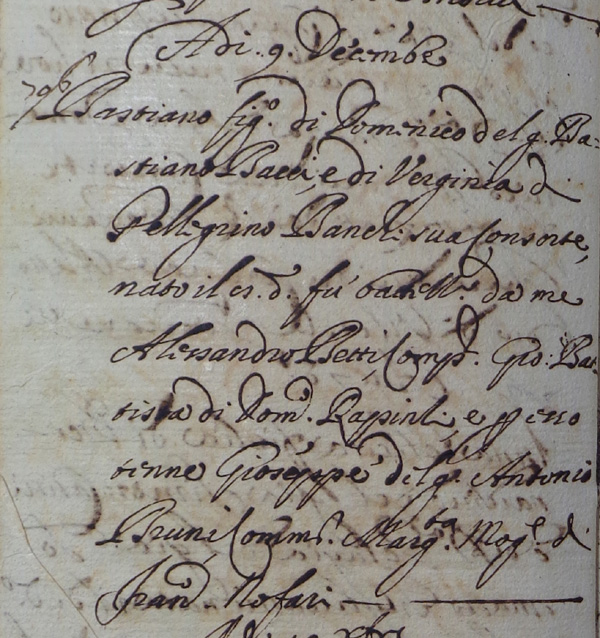 Adi. 9. Decembe
Bastiano fig.º di Domenico del q. Ba-
stiano Bacci, e di Verginia di
Pellegrino Baneli sua Consorte,
nato il es. d. fu da me
Alessandro Betti Comp.e Gio: Bat-
tista di Dom.o Rapinli, e p esso
tenne Gioseppe del q. Antonio
Bruni Comm.e Marg.ta Mog.e di
Fran.o Nofari